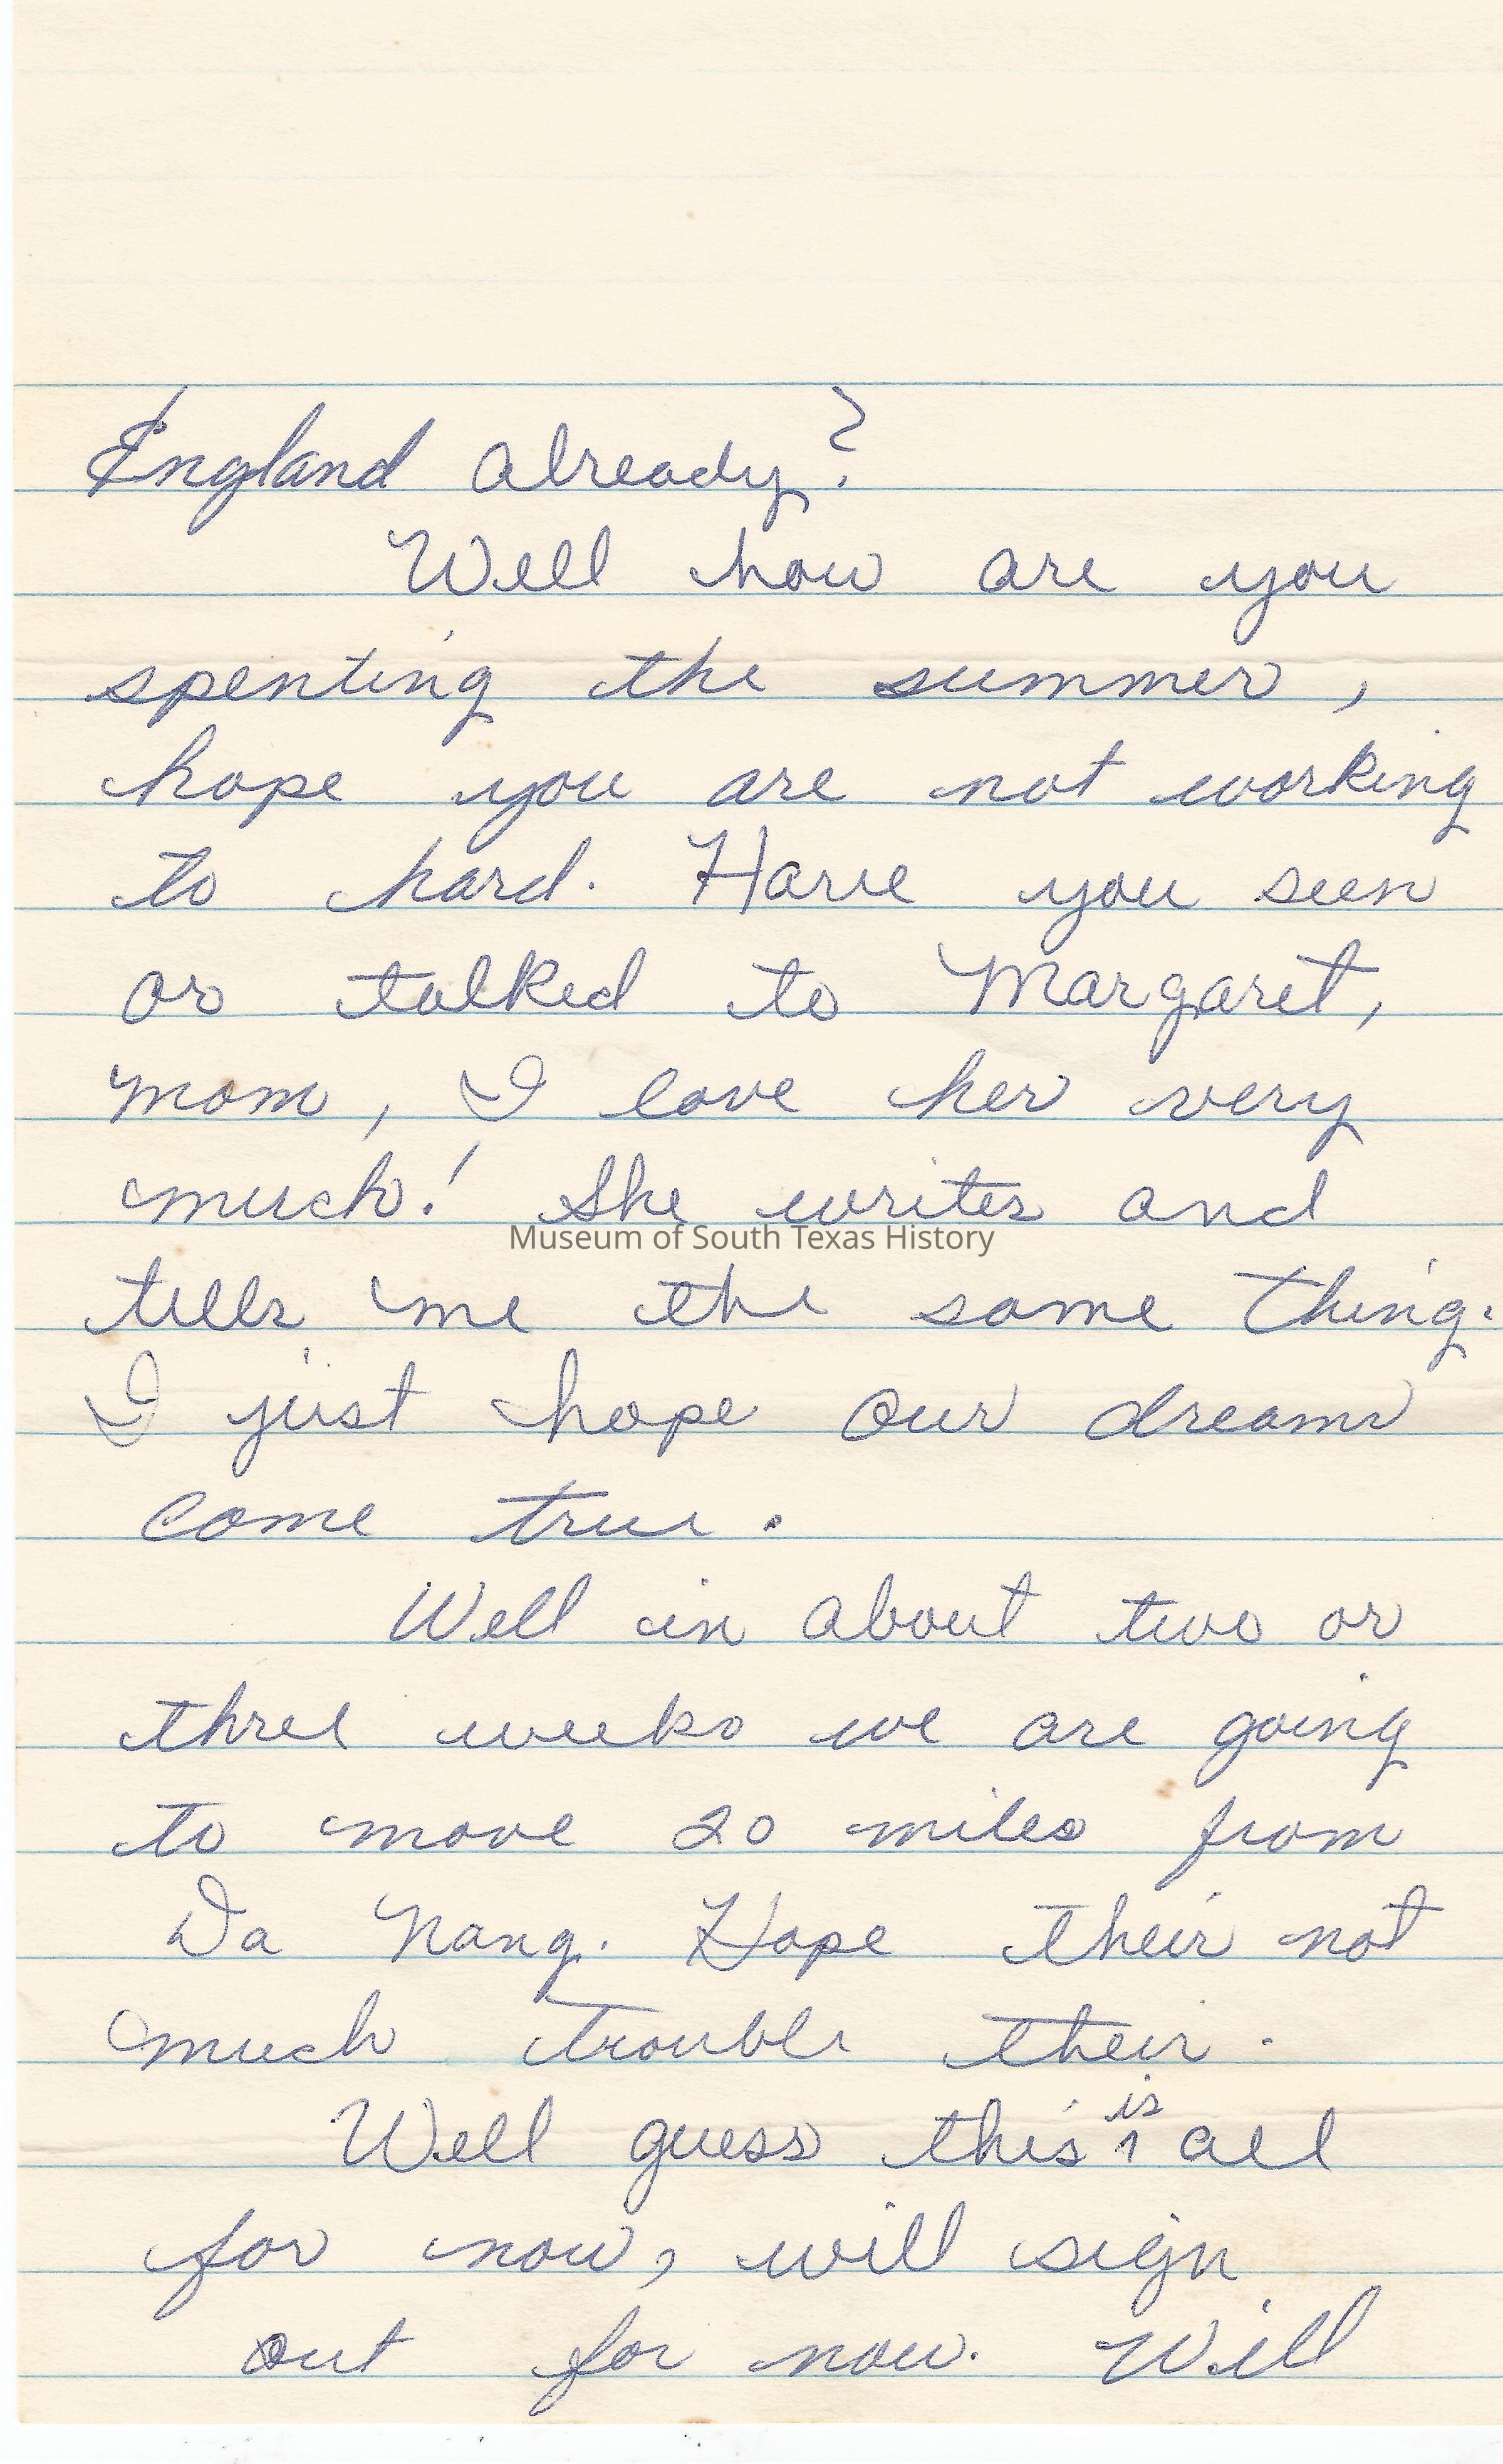 England already?
Well how are you
spenting the summer,
hope you are not working
to hard. Have you seen
or talked to Margaret,
mom, I love her very
much! She writes and
Museum of South Texas History
tells me the same thing.
I just hope our dreams
come true.
Well in about two or
three weeks we are going
to move 20 miles from
Da Nang. Hope their not
much trouble their.
Well guess this is all
for now, will sign
out for now. Will